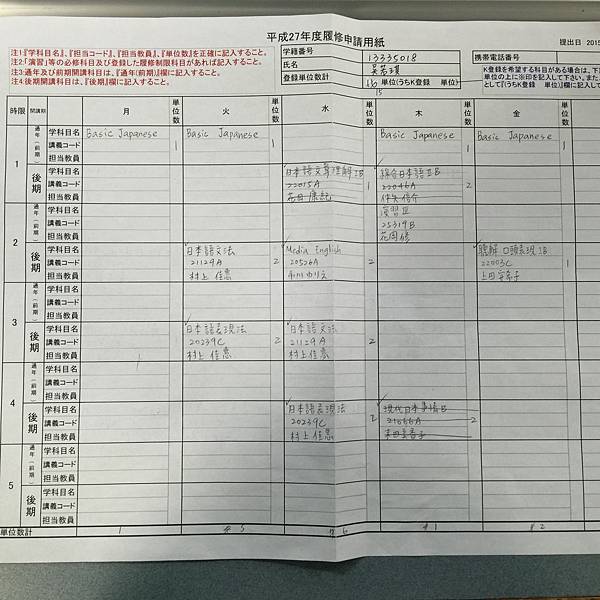 平成27年度履修申請用紙
提出日 2015
注1:『学科目名』、『担当コード』、『担当教員』、『単位数』を正確に記入すること。
注2:「演習」等の必修科目及び登録した履修制限科目があれば記入すること。
注3:通年及び前期開講科目は、『通年(前期)』欄に記入すること。
注4:後期開講科目は、『後期』欄に記入すること。
学籍番号 13335018
氏名
登録単位数計 16 単位(うちK登録 単位)
15
携帯電話番号
K登録を希望する科目がある場合は、下
単位の上に※印を記入して下さい。また
として『(うちK登録 単位)』欄に記入して
時限 開講期 月 単位数 火 単位数 水 単位数 木 単位数 金 単位数
1
通年(前期) 学科目名 Basic Japanese Basic Japanese Basic Japanese Basic Japanese
講義コード 1 1 1 1
担当教員
後期 学科目名 日本語文章理解法B 総合日本語ⅡB
講義コード 22015A 1 22046A 2
担当教員
2
通年(前期) 学科目名 演習Ⅲ
講義コード 25319B
担当教員
後期 学科目名 日本語文法 Media English 聴解・口頭表現法B
講義コード 21129A 2 20526A 2 22003C 1
担当教員 村上 佳恵
3
通年(前期) 学科目名
講義コード
担当教員
後期 学科目名 日本語表現法 日本語文法
講義コード 20239C 2 21129A 2
担当教員 村上 佳恵 村上 佳恵
4
通年(前期) 学科目名
講義コード
担当教員
後期 学科目名 日本語表現法 現代日本事情B
講義コード 20239C 2 21666A 2
担当教員 村上 佳恵
5
通年(前期) 学科目名
講義コード
担当教員
後期 学科目名
講義コード
担当教員
単位数計 1